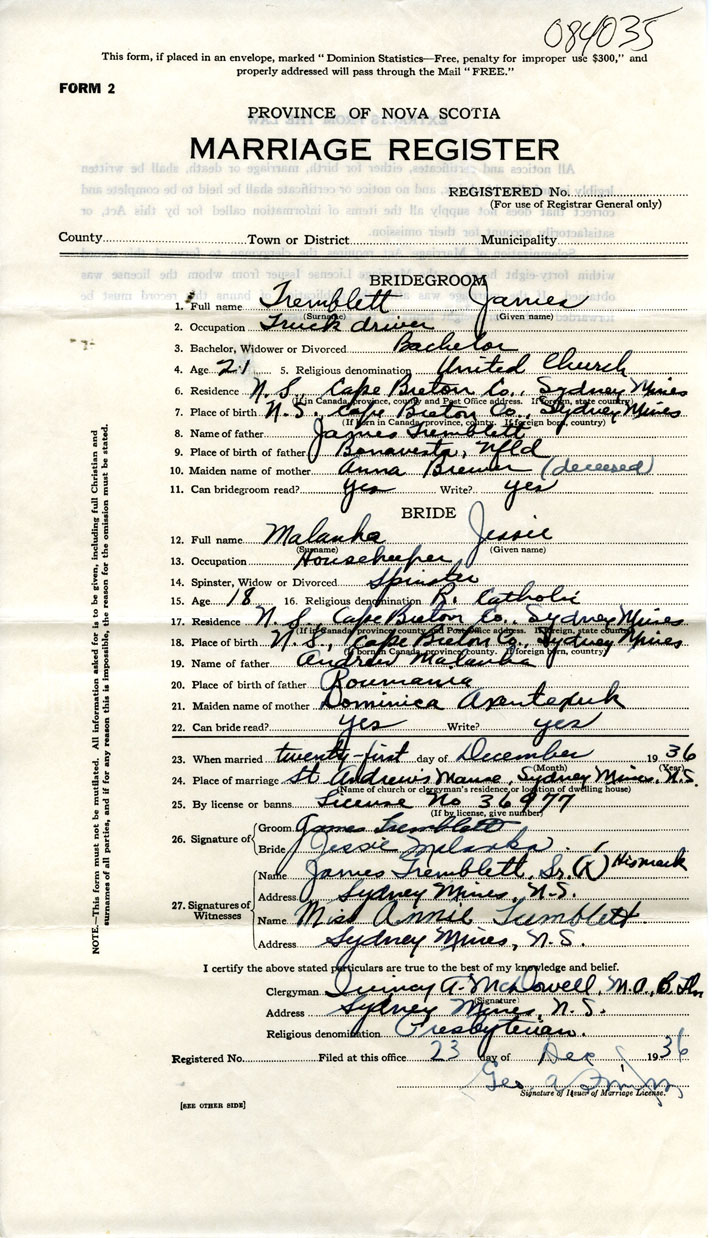 084035
This form, if placed in an envelope, marked "Dominion Statistics—Free, penalty for improper use $300," and
properly addressed will pass through the Mail "FREE."
FORM 2
PROVINCE OF NOVA SCOTIA
MARRIAGE REGISTER
REGISTERED No.
(For use of Registrar General only)
County Town or District Municipality
BRIDEGROOM
1. Full name Tremblett James
(Surname) (Given name)
2. Occupation Truck driver
3. Bachelor, Widower or Divorced Bachelor
4. Age 21 5. Religious denomination United Church
6. Residence N.S., Cape Breton Co., Sydney Mines
(If in Canada, province, county and Post Office address. If foreign, state country)
7. Place of birth N.S., Cape Breton Co., Sydney Mines
(If born in Canada, province, county. If foreign born, country)
8. Name of father James Tremblett
9. Place of birth of father Bonavesta, Nfld
10. Maiden name of mother Anna Brewer (deceased)
11. Can bridegroom read? yes Write? yes
BRIDE
12. Full name Malanka Jessie
(Surname) (Given name)
13. Occupation Housekeeper
14. Spinster, Widow or Divorced Spinster
15. Age 18 16. Religious denomination R. Catholic
17. Residence N.S., Cape Breton Co., Sydney Mines
(If in Canada, province, county and Post Office address. If foreign, state country)
18. Place of birth N.S., Cape Breton Co., Sydney Mines
(If born in Canada, province, county. If foreign born, country)
19. Name of father Andrew Malanka
20. Place of birth of father Roumania
21. Maiden name of mother Dominica
22. Can bride read? yes Write? yes
23. When married twenty-first day of December 1936
(Month) (Year)
24. Place of marriage St Andrew's Manse, Sydney Mines, N.S.
(Name of church or clergyman's residence or location of dwelling house)
25. By license or banns License No 36977
(If by license, give number)
26. Signature of Groom James Tremblett
Bride Jessie Malanka
27. Signatures of Witnesses
Name James Tremblett, Sr. (X) His mark
Address Sydney Mines, N.S.
Name Miss Annie Tremblett
Address Sydney Mines, N.S.
I certify the above stated particulars are true to the best of my knowledge and belief.
Clergyman Quincy A. McDowell, M.A., B.Th
(Signature)
Address Sydney Mines, N.S.
Religious denomination Presbyterian.
Registered No. Filed at this office 23 day of Dec 1936
Geo a
Signature of Issuer of Marriage License.
[SEE OTHER SIDE]
NOTE.—This form must not be mutilated. All information asked for is to be given, including full Christian and
surnames of all parties, and if for any reason this is impossible, the reason for the omission must be stated.